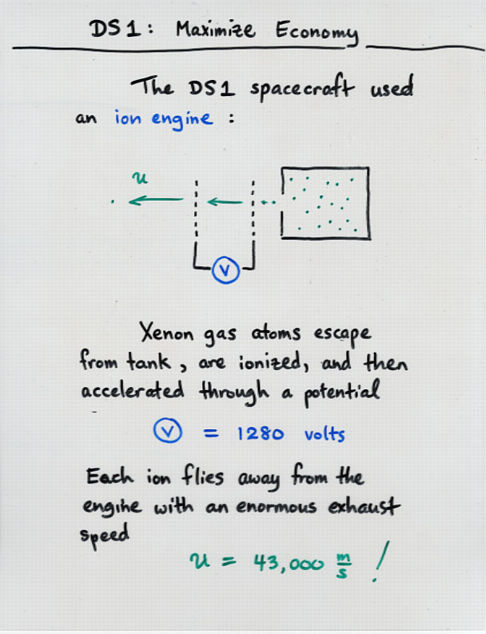 DS1: Maximize Economy
The DS1 spacecraft used
an ion engine :
u
V
Xenon gas atoms escape
from tank, are ionized, and then
accelerated through a potential
V = 1280 volts
Each ion flies away from the
engine with an enormous exhaust
speed
u = 43,000 m/s !